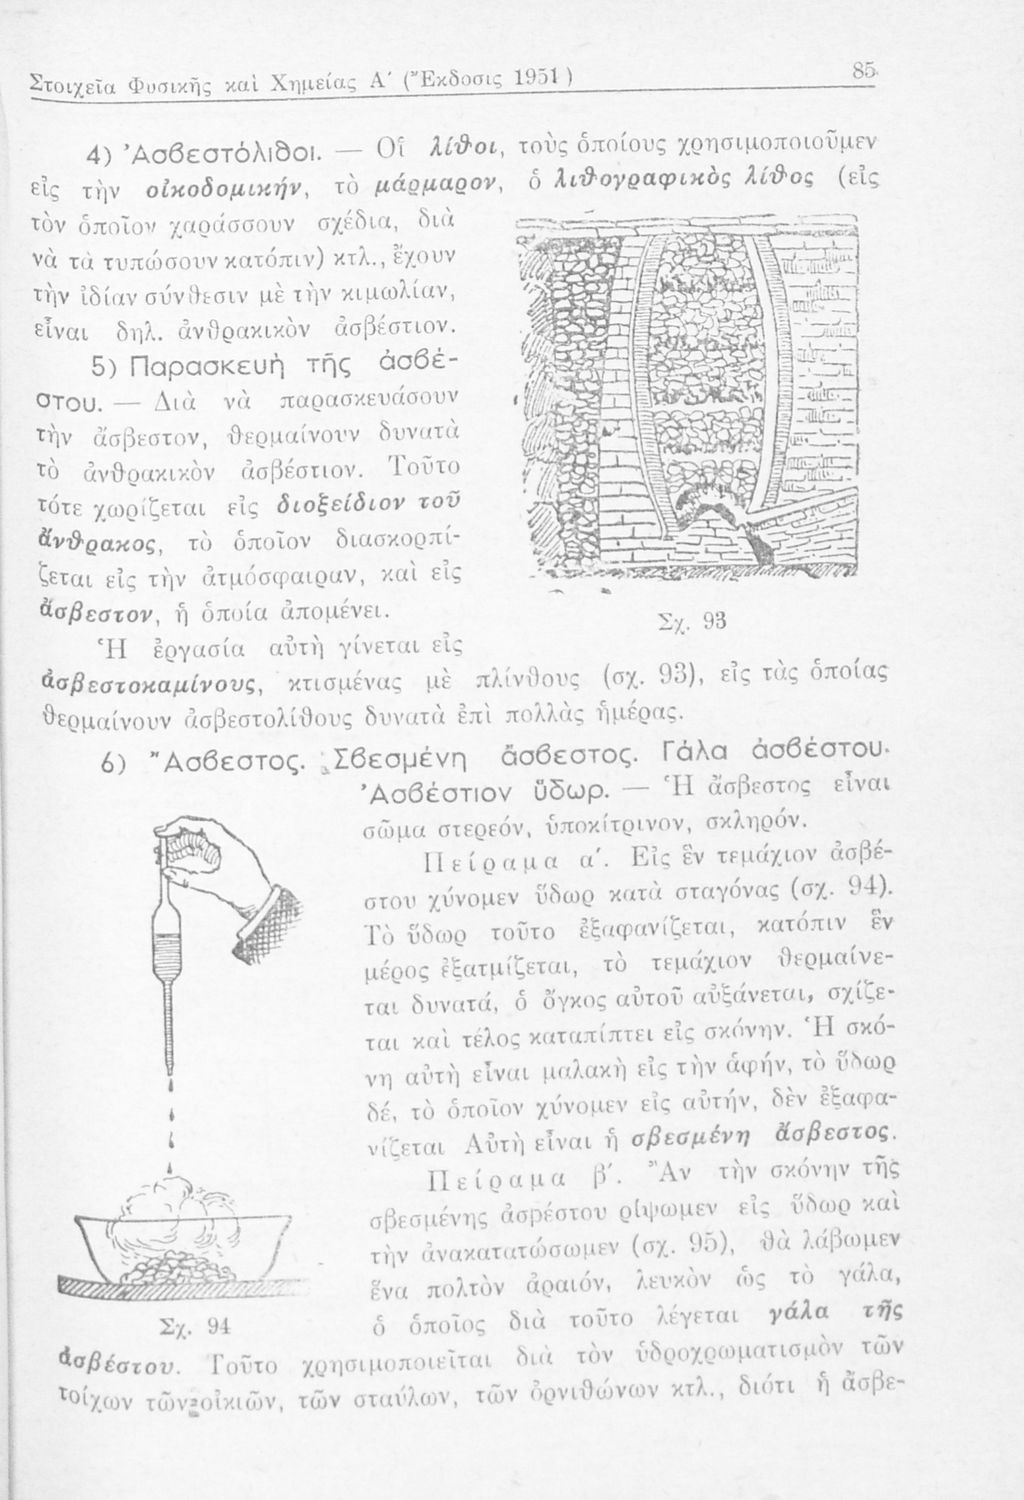 Στοιχεῖα Φυσικῆς καὶ Χημείας Α΄ (Ἔκδοσις 1951)
85
4) Ἀσβεστόλιθοι. — Οἱ λίθοι, τοὺς ὁποίους χρησιμοποιοῦμεν
εἰς τὴν οἰκοδομικήν, τὸ μάρμαρον, ὁ λιθογραφικὸς λίθος (εἰς
τὸν ὁποῖον χαράσσουν σχέδια, διὰ
νὰ τὰ τυπώσουν κατόπιν) κτλ., ἔχουν
τὴν ἰδίαν σύνθεσιν μὲ τὴν κιμωλίαν,
εἶναι δηλ. ἀνθρακικὸν ἀσβέστιον.
5) Παρασκευὴ τῆς ἀσβέ-
στου. — Διὰ νὰ παρασκευάσουν
τὴν ἄσβεστον, θερμαίνουν δυνατὰ
τὸ ἀνθρακικὸν ἀσβέστιον. Τοῦτο
τότε χωρίζεται εἰς διοξείδιον τοῦ
ἄνθρακος, τὸ ὁποῖον διασκορπί-
ζεται εἰς τὴν ἀτμόσφαιραν, καὶ εἰς
ἄσβεστον, ἡ ὁποία ἀπομένει.
Σχ. 93
Ἡ ἐργασία αὐτὴ γίνεται εἰς
ἀσβεστοκαμίνους, κτισμένας μὲ πλίνθους (σχ. 93), εἰς τὰς ὁποίας
θερμαίνουν ἀσβεστολίθους δυνατὰ ἐπὶ πολλὰς ἡμέρας.
6) Ἄσβεστος. Σβεσμένη ἄσβεστος. Γάλα ἀσβέστου.
Ἀσβέστιον ὕδωρ. — Ἡ ἄσβεστος εἶναι
σῶμα στερεόν, ὑποκίτρινον, σκληρόν.
Πείραμα α΄. Εἰς ἓν τεμάχιον ἀσβέ-
στου χύνομεν ὕδωρ κατὰ σταγόνας (σχ. 94).
Τὸ ὕδωρ τοῦτο ἐξαφανίζεται, κατόπιν ἓν
μέρος ἐξατμίζεται, τὸ τεμάχιον θερμαίνε-
ται δυνατά, ὁ ὄγκος αὐτοῦ αὐξάνεται, σχίζε-
ται καὶ τέλος καταπίπτει εἰς σκόνην. Ἡ σκό-
νη αὐτὴ εἶναι μαλακὴ εἰς τὴν ἁφήν, τὸ ὕδωρ
δέ, τὸ ὁποῖον χύνομεν εἰς αὐτήν, δὲν ἐξαφα-
νίζεται Αὐτὴ εἶναι ἡ σβεσμένη ἄσβεστος.
Πείραμα β΄. Ἂν τὴν σκόνην τῆς
σβεσμένης ἀσβέστου ρίψωμεν εἰς ὕδωρ καὶ
τὴν ἀνακατατώσωμεν (σχ. 95), θὰ λάβωμεν
ἕνα πολτὸν ἀραιόν, λευκὸν ὡς τὸ γάλα,
Σχ. 94
ὁ ὁποῖος διὰ τοῦτο λέγεται γάλα τῆς
ἀσβέστου. Τοῦτο χρησιμοποιεῖται διὰ τὸν ὑδροχρωματισμὸν τῶν
τοίχων τῶν οἰκιῶν, τῶν σταύλων, τῶν ὀρνιθώνων κτλ., διότι ἡ ἄσβε-